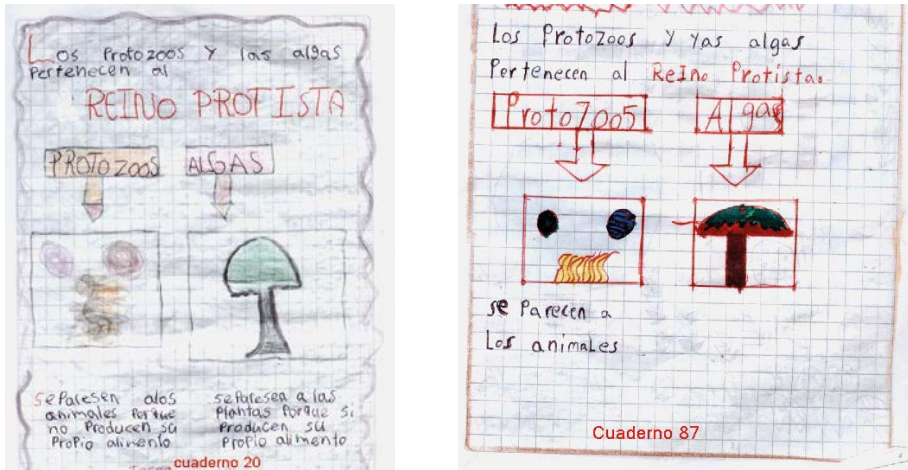 Los Protozoos y las algas
Pertenecen al
REINO PROTISTA
PROTOZOOS ALGAS
se Paresen alos
animales Porque
no Producen su
Propio alimento
se Paresea a las
Plantas Porque si
Producen su
Propio alimento
cuaderno 20
Los Protozoos y yas algas
Pertenecen al Reino Protista.
Protozoos Algas
se Parecen a
Los animales
Cuaderno 87